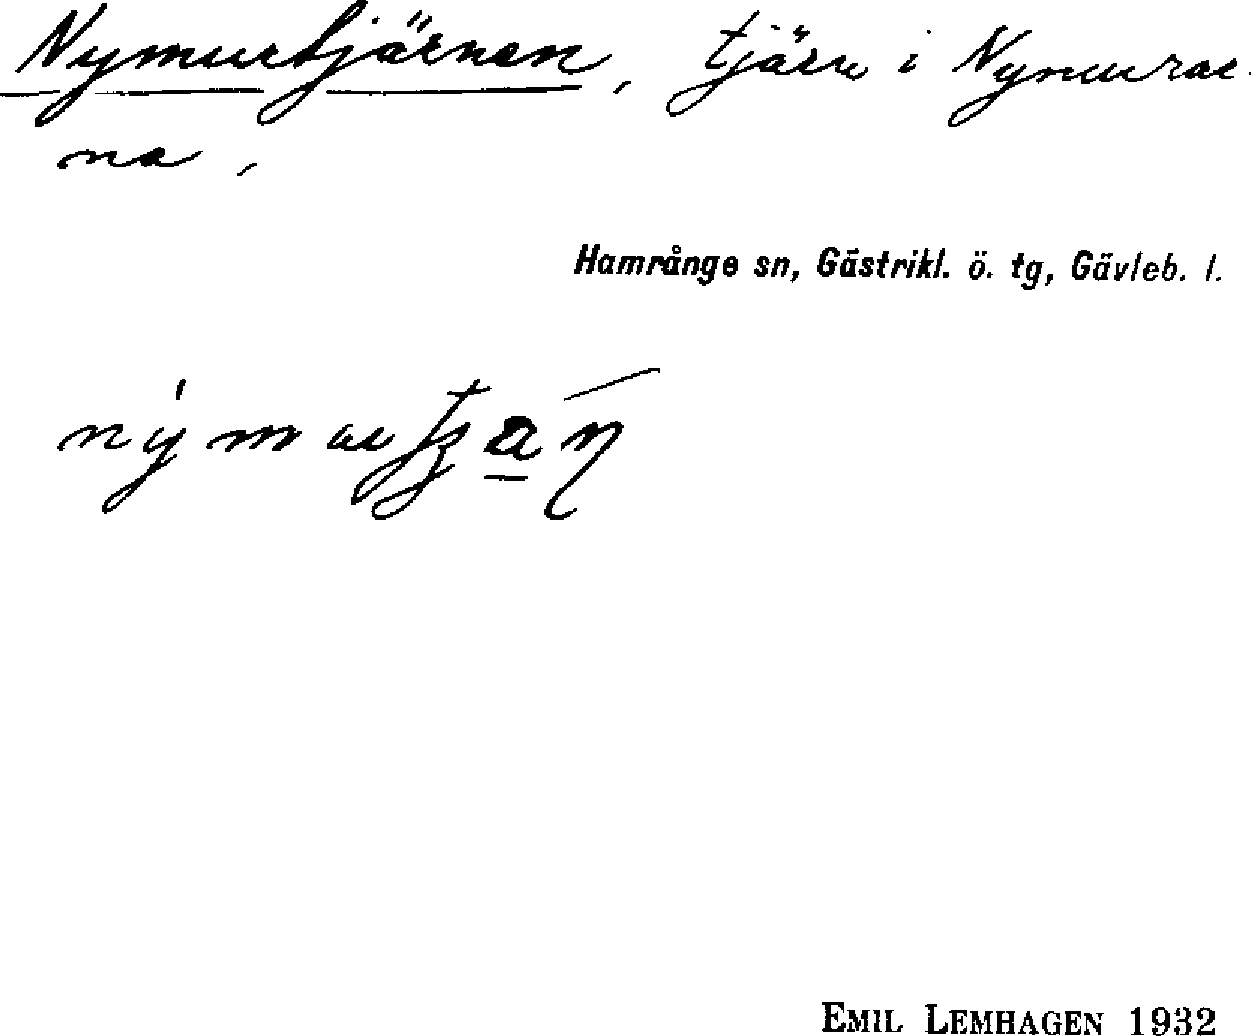 Nymurtjärnen, tjärn i Nymurar-
na,
Hamrånge sn, Gästrikl. ö. tg, Gävleb. l.
EMIL LEMHAGEN 1932